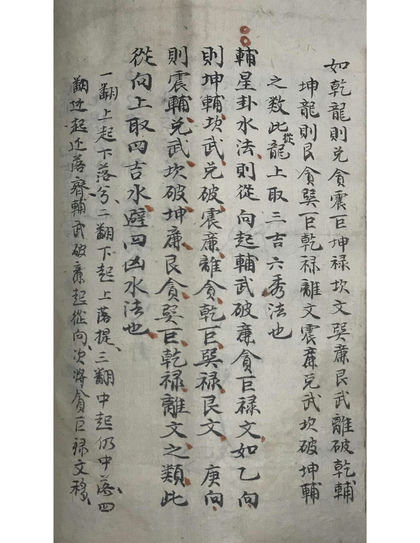 如乾龍則兌貪震巨坤禄坎文巽廉艮武離破乾輔
坤龍則艮貪巽巨乾禄離文震廉兌武坎破坤輔
之数此從龍上取三吉六秀法也
輔星卦水法則從向起輔武破廉貪巨禄文如乙向
則坤輔坎武兌破震廉離貪乾巨巽禄艮文庚向
則震輔兌武坎破坤廉艮貪巽巨乾禄離文之類此
從向上取四吉水避四凶水法也
一翻上起下落兮二翻下起上落提三翻中起仍中落四
翻边起边落齊輔武破廉起從向次將貪巨禄文移